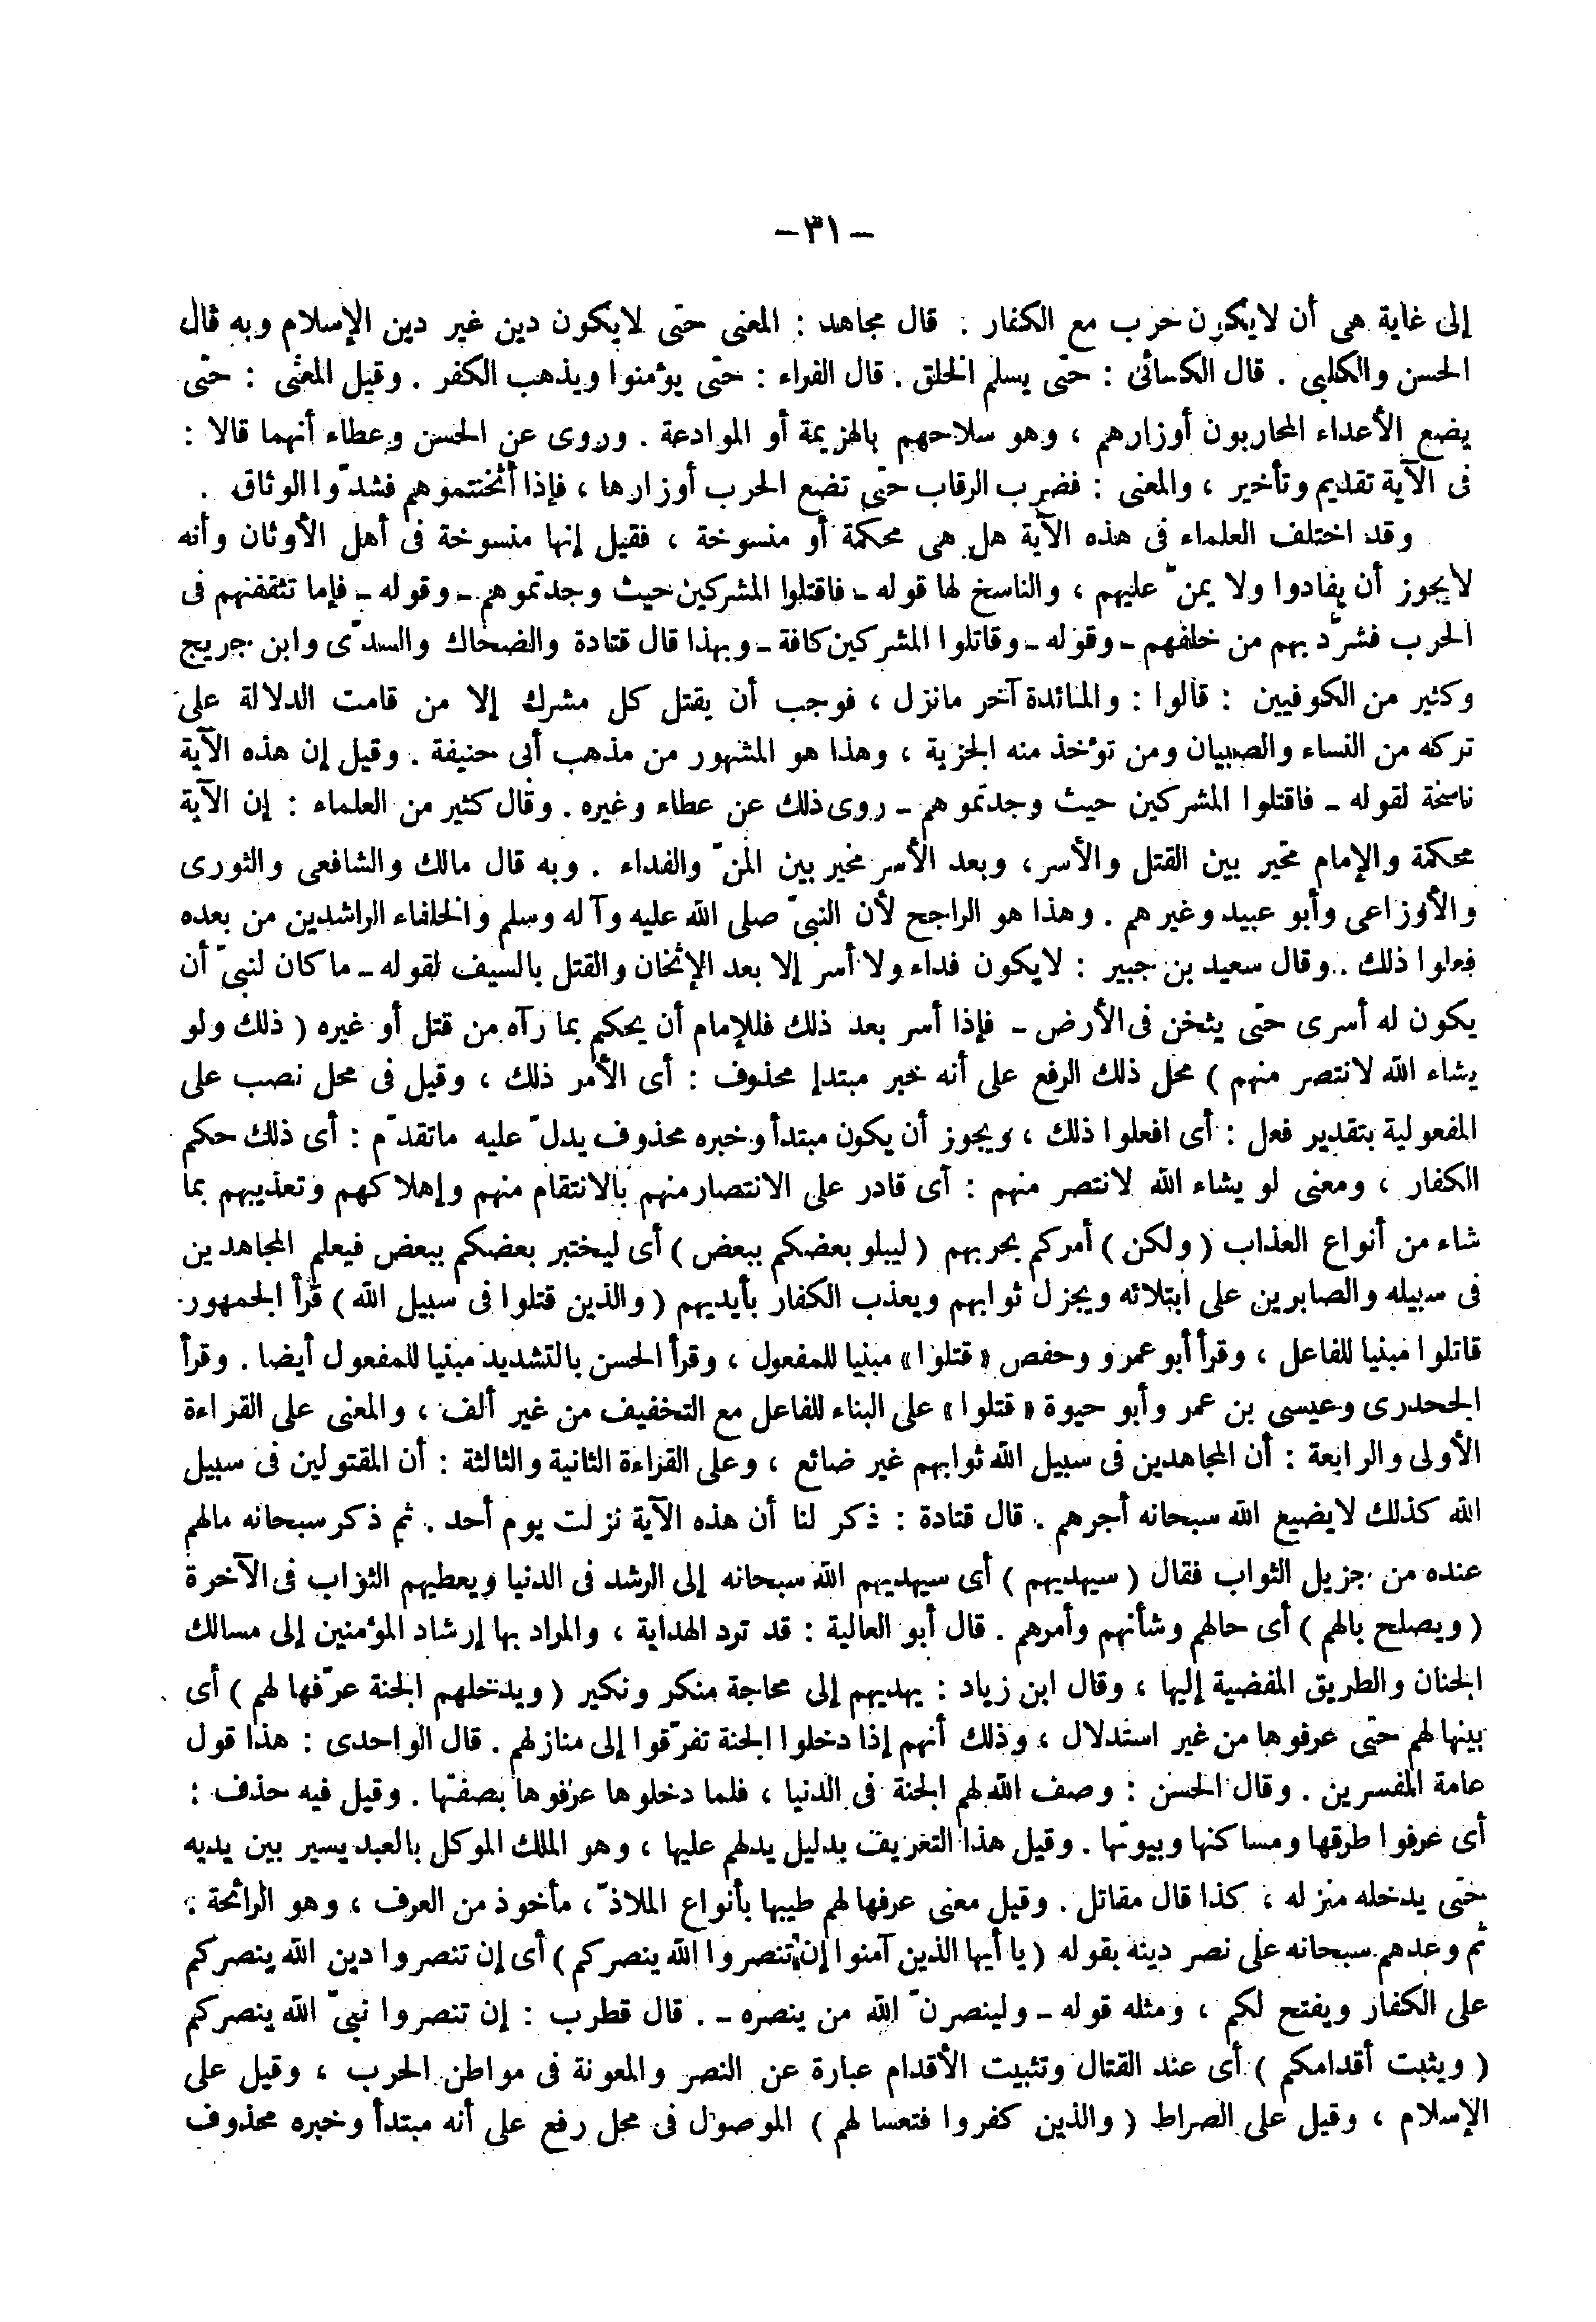 — ٣١ —
إلى غاية هى أن لايكون حرب مع الكفار . قال مجاهد : المعنى حتى لايكون دين غير دين الإسلام وبه قال
الحسن والكلبى . قال الكسائى : حتى يسلم الخلق . قال الفراء : حتى يؤمنوا ويذهب الكفر . وقيل المعنى : حتى
يضع الأعداء المحاربون أوزارهم ، وهو سلاحهم بالهزيمة أو الموادعة . وروى عن الحسن وعطاء أنهما قالا :
فى الآية تقديم وتأخير ، والمعنى : فضرب الرقاب حتى تضع الحرب أوزارها ، فإذا أثخنتموهم فشدّوا الوثاق .
وقد اختلف العلماء فى هذه الآية هل هى محكمة أو منسوخة ، فقيل إنها منسوخة فى أهل الأوثان وأنه
لايجوز أن يفادوا ولا يمنّ عليهم ، والناسخ لها قوله ـ فاقتلوا المشركين حيث وجدتموهم ـ وقوله ـ فإما تثقفنهم فى
الحرب فشرّد بهم من خلفهم ـ وقوله ـ وقاتلوا المشركين كافة ـ وبهذا قال قتادة والضحاك والسدّى وابن جريج
وكثير من الكوفيين : قالوا : والمائدة آخر مانزل ، فوجب أن يقتل كل مشرك إلا من قامت الدلالة على
تركه من النساء والصبيان ومن تؤخذ منه الجزية ، وهذا هو المشهور من مذهب أبى حنيفة . وقيل إن هذه الآية
ناسخة لقوله ـ فاقتلوا المشركين حيث وجدتموهم ـ روى ذلك عن عطاء وغيره . وقال كثير من العلماء : إن الآية
محكمة والإمام مخير بين القتل والأسر ، وبعد الأسر مخير بين المنّ والفداء . وبه قال مالك والشافعى والثورى
والأوزاعى وأبو عبيد وغيرهم . وهذا هو الراجح لأن النبىّ صلى الله عليه وآله وسلم والخلفاء الراشدين من بعده
فعلوا ذلك . وقال سعيد بن جبير : لايكون فداء ولا أسر إلا بعد الإثخان والقتل بالسيف لقوله ـ ما كان لنبىّ أن
يكون له أسرى حتى يثخن فى الأرض ـ فإذا أسر بعد ذلك فللإمام أن يحكم بما رآه من قتل أو غيره ( ذلك ولو
يشاء الله لانتصر منهم ) محل ذلك الرفع على أنه خبر مبتدإ محذوف : أى الأمر ذلك ، وقيل فى محل نصب على
المفعولية بتقدير فعل : أى افعلوا ذلك ، ويجوز أن يكون مبتدأ وخبره محذوف يدلّ عليه ماتقدّم : أى ذلك حكم
الكفار ، ومعنى لو يشاء الله لانتصر منهم : أى قادر على الانتصار منهم بالانتقام منهم وإهلاكهم وتعذيبهم بما
شاء من أنواع العذاب ( ولكن ) أمركم بحربهم ( ليبلو بعضكم ببعض ) أى ليختبر بعضكم ببعض فيعلم المجاهدين
فى سبيله والصابرين على ابتلائه ويجزل ثوابهم ويعذب الكفار بأيديهم ( والذين قتلوا فى سبيل الله ) قرأ الجمهور
قاتلوا مبنيا للفاعل ، وقرأ أبو عمرو وحفص « قتلوا » مبنيا للمفعول ، وقرأ الحسن بالتشديد مبنيا للمفعول أيضا . وقرأ
الجحدرى وعيسى بن عمر وأبو حيوة « قتلوا » على البناء للفاعل مع التخفيف من غير ألف ، والمعنى على القراءة
الأولى والرابعة : أن المجاهدين فى سبيل الله ثوابهم غير ضائع ، وعلى القراءة الثانية والثالثة : أن المقتولين فى سبيل
الله كذلك لايضيع الله سبحانه أجرهم . قال قتادة : ذكر لنا أن هذه الآية نزلت يوم أحد . ثم ذكر سبحانه مالهم
عنده من جزيل الثواب فقال ( سيهديهم ) أى سيهديهم الله سبحانه إلى الرشد فى الدنيا ويعطيهم الثواب فى الآخرة
( ويصلح بالهم ) أى حالهم وشأنهم وأمرهم . قال أبو العالية : قد ترد الهداية ، والمراد بها إرشاد المؤمنين إلى مسالك
الجنان والطريق المفضية إليها ، وقال ابن زياد : يهديهم إلى محاجة منكر ونكير ( ويدخلهم الجنة عرّفها لهم ) أى
بينها لهم حتى عرفوها من غير استدلال ، وذلك أنهم إذا دخلوا الجنة تفرّقوا إلى منازلهم . قال الواحدى : هذا قول
عامة المفسرين . وقال الحسن : وصف الله لهم الجنة فى الدنيا ، فلما دخلوها عرفوها بصفتها . وقيل فيه حذف :
أى عرفوا طرقها ومساكنها وبيوتها . وقيل هذا التعريف بدليل يدلهم عليها ، وهو الملك الموكل بالعبد يسير بين يديه
حتى يدخله منزله ، كذا قال مقاتل . وقيل معنى عرفها لهم طيبها بأنواع الملاذّ ، مأخوذ من العرف ، وهو الرائحة .
ثم وعدهم سبحانه على نصر دينه بقوله ( يا أيها الذين آمنوا إن تنصروا الله ينصركم ) أى إن تنصروا دين الله ينصركم
على الكفار ويفتح لكم ، ومثله قوله ـ ولينصرنّ الله من ينصره ـ . قال قطرب : إن تنصروا نبىّ الله ينصركم
( ويثبت أقدامكم ) أى عند القتال وتثبيت الأقدام عبارة عن النصر والمعونة فى مواطن الحرب ، وقيل على
الإسلام ، وقيل على الصراط ( والذين كفروا فتعسا لهم ) الموصول فى محل رفع على أنه مبتدأ وخبره محذوف